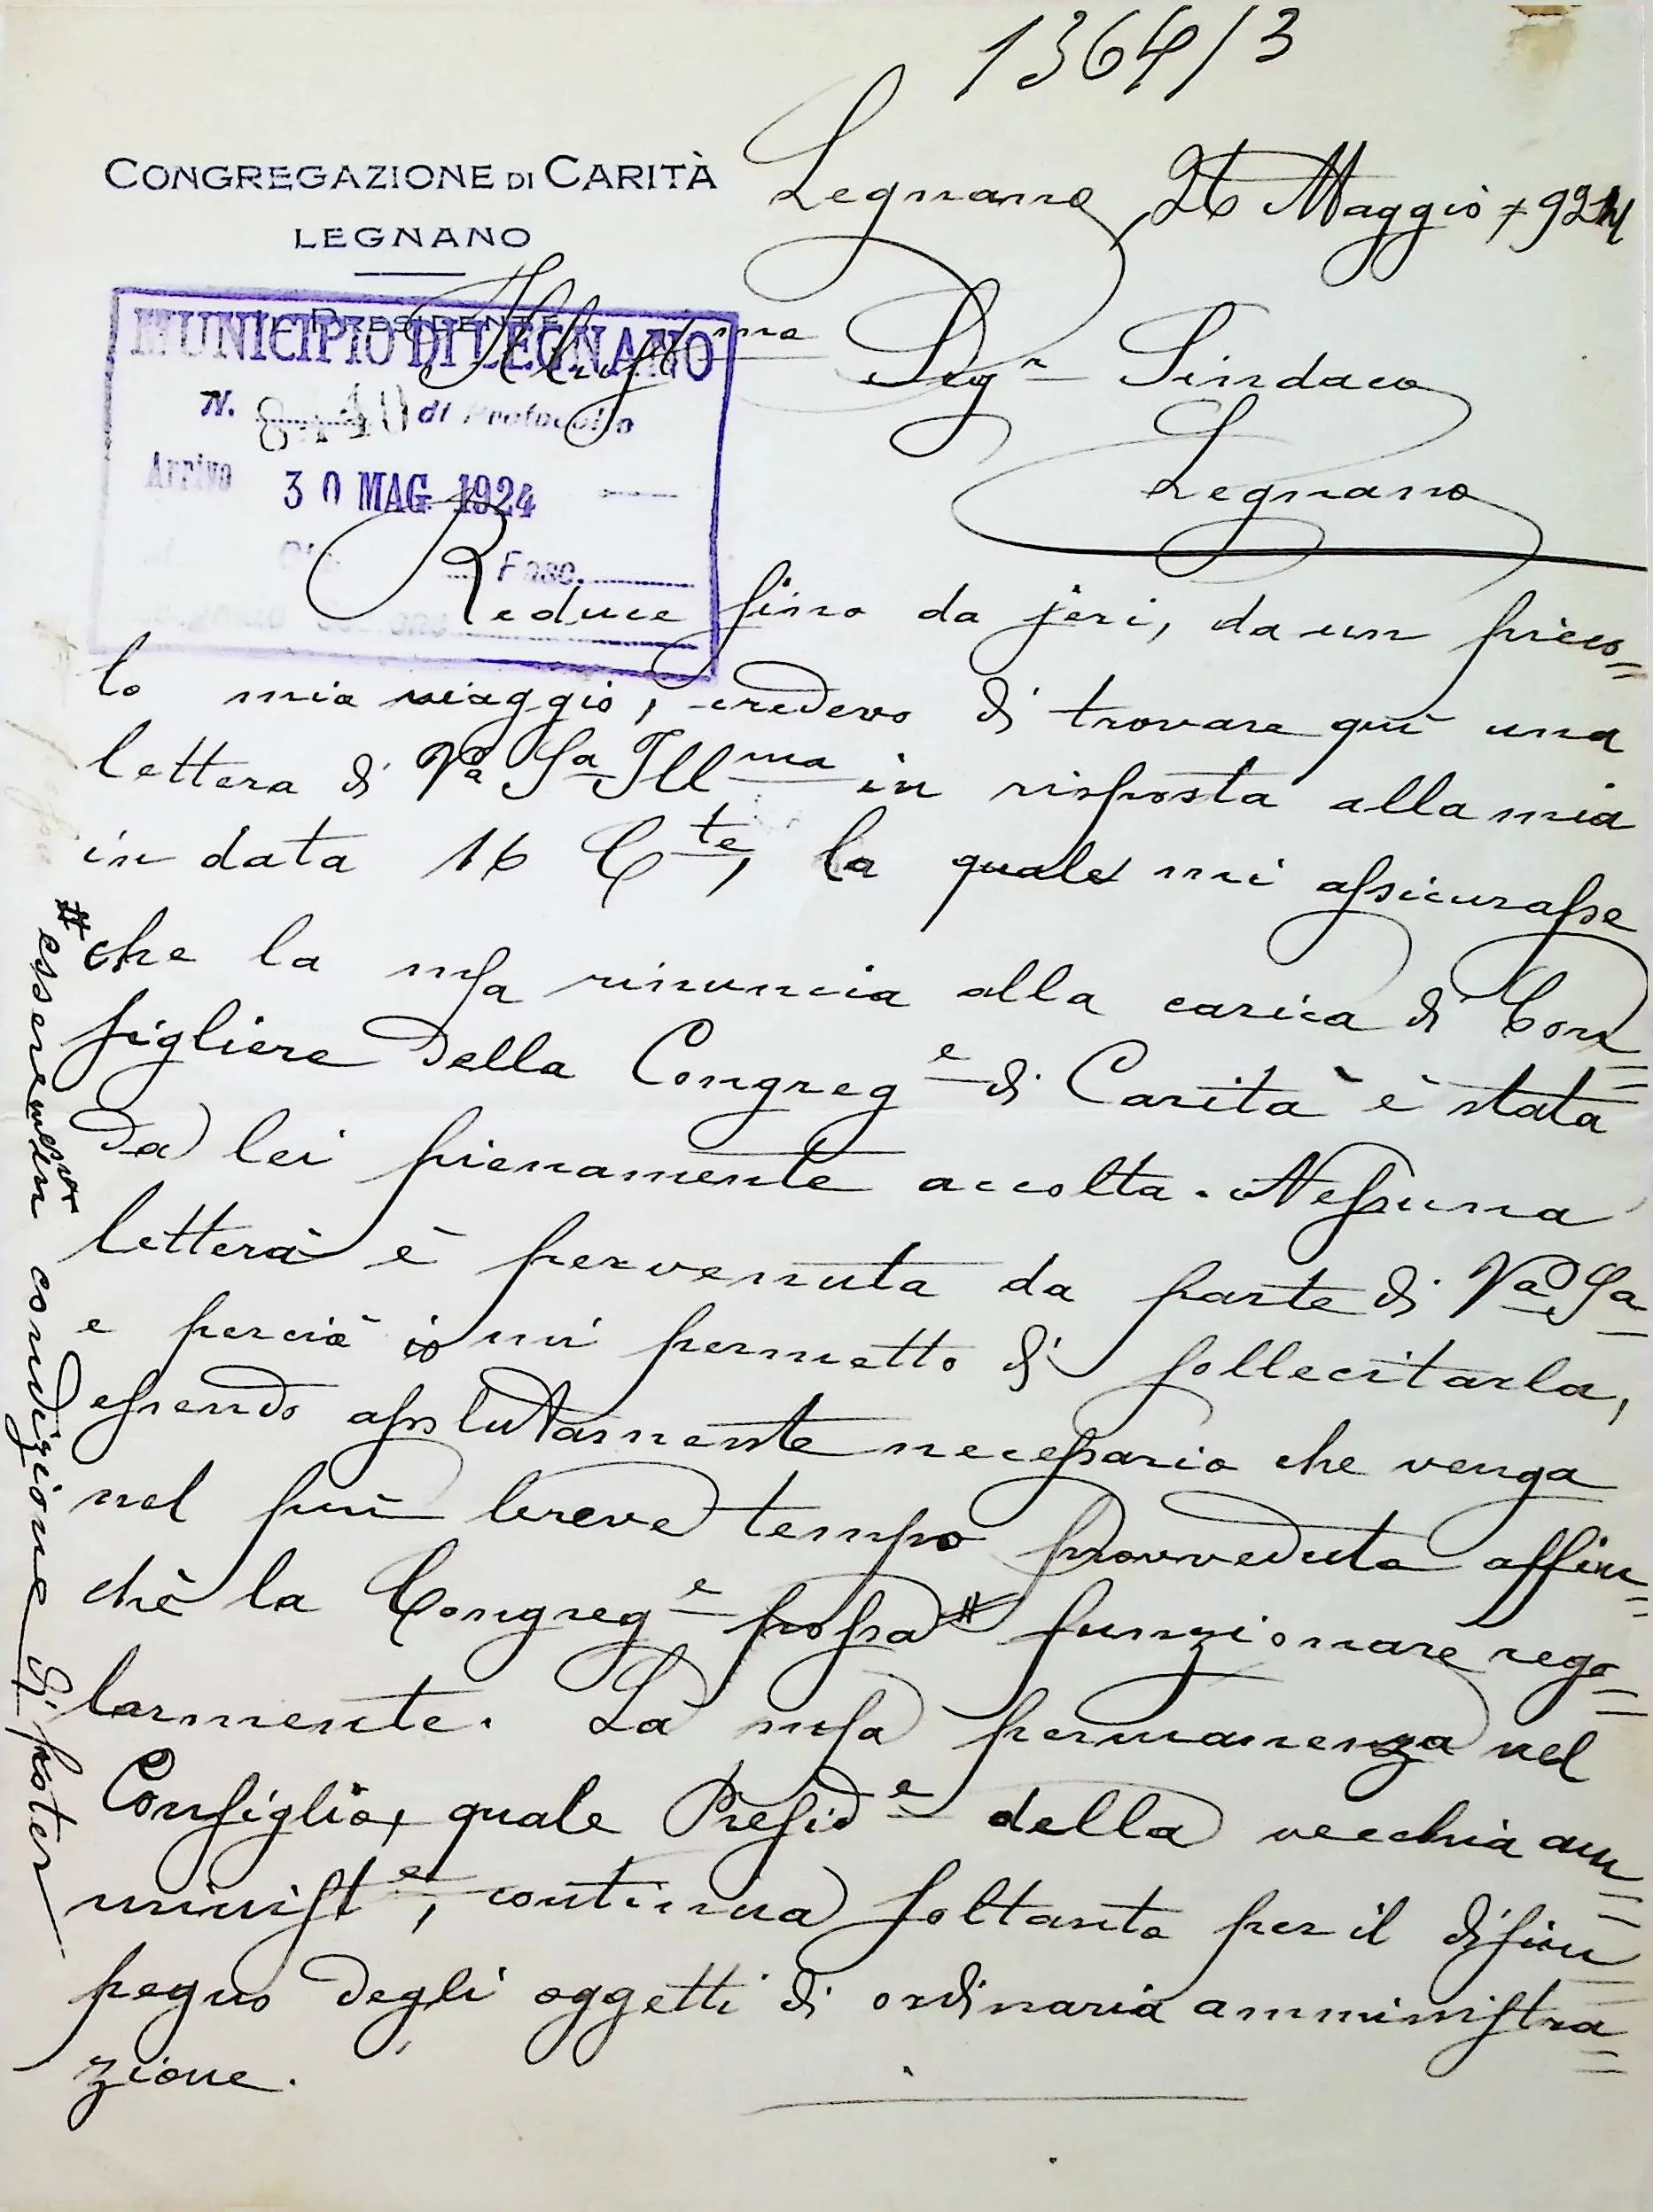 1364/3
CONGREGAZIONE DI CARITÀ
LEGNANO
PRESIDENTE
Legnano, 26 Maggio 1924
MUNICIPIO DI LEGNANO
N. di Protocollo
Arrivo 30 MAG. 1924
Fasc.
Ill mo Sigr Sindaco
Legnano
Reduce fino da jeri, da un picco=
lo mio viaggio, credevo di trovare quì una
lettera di Va Sa Illma in risposta alla mia
in data 16 Cte, la quale mi assicurasse
che la mia rinuncia alla carica di Con=
sigliere della Congrege di Carità è stata
da lei pienamente accolta. Nessuna
lettera è pervenuta da parte di Va Sa
e perciò io mi permetto di sollecitarla,
essendo assolutamente necessario che venga
nel più breve tempo provveduto affin=
chè la Congrege possa # funzionare rego=
larmente. La mia permanenza nel
Consiglio, quale Preside della vecchia am=
minist e, continua soltanto per il disim=
pegno degli oggetti di ordinaria amministra=
zione.
# essere messa in condizione di poter